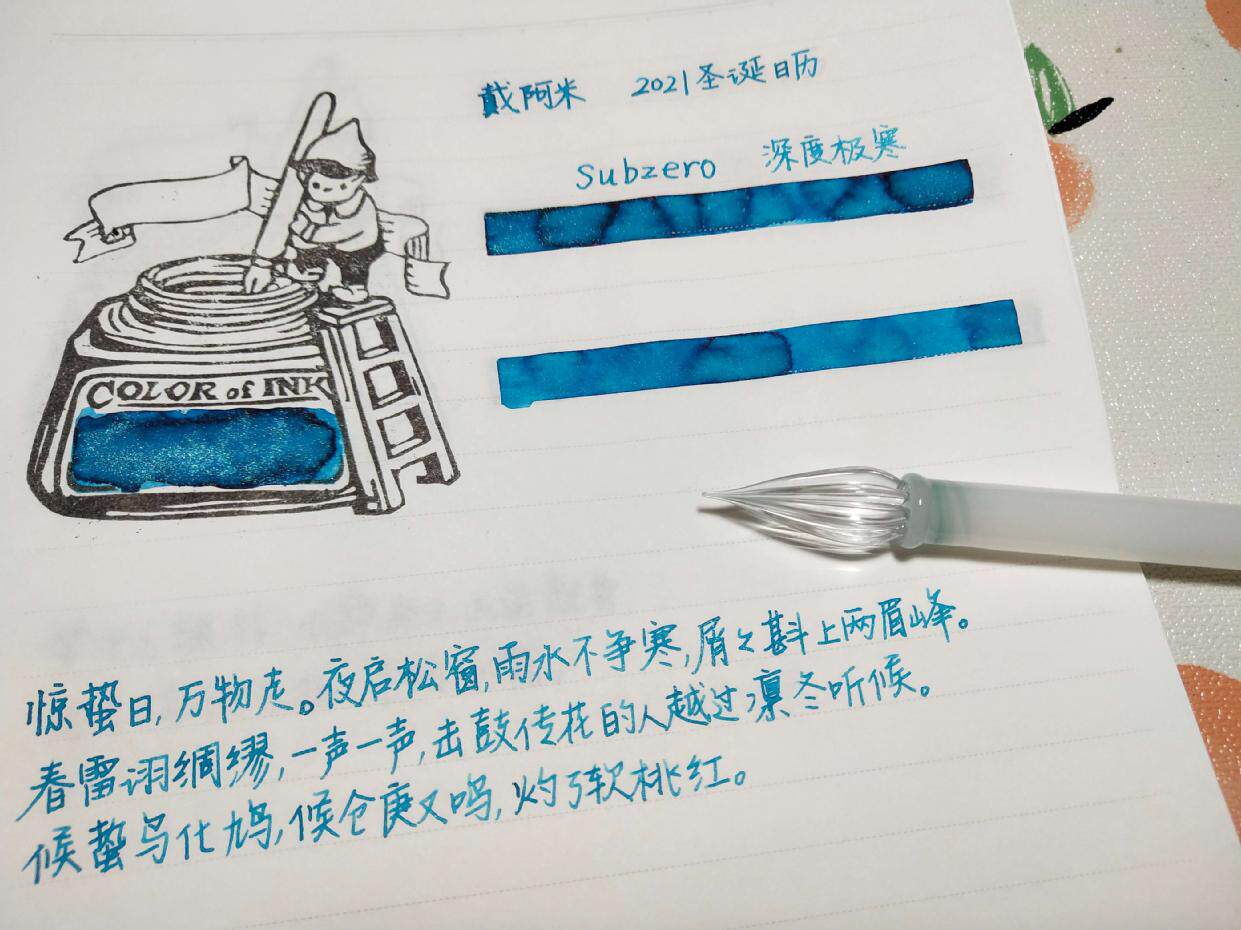 戴阿米 2021圣诞日历
Subzero 深度极寒
COLOR of INK
惊蛰日,万物走。夜启松窗,雨水不争寒,屑々斟上两眉峰。
春雷诩绸缪,一声一声,击鼓传花的人越过凛冬听候。
候蛰鸟化鸠,候仓庚又鸣,灼了软桃红。